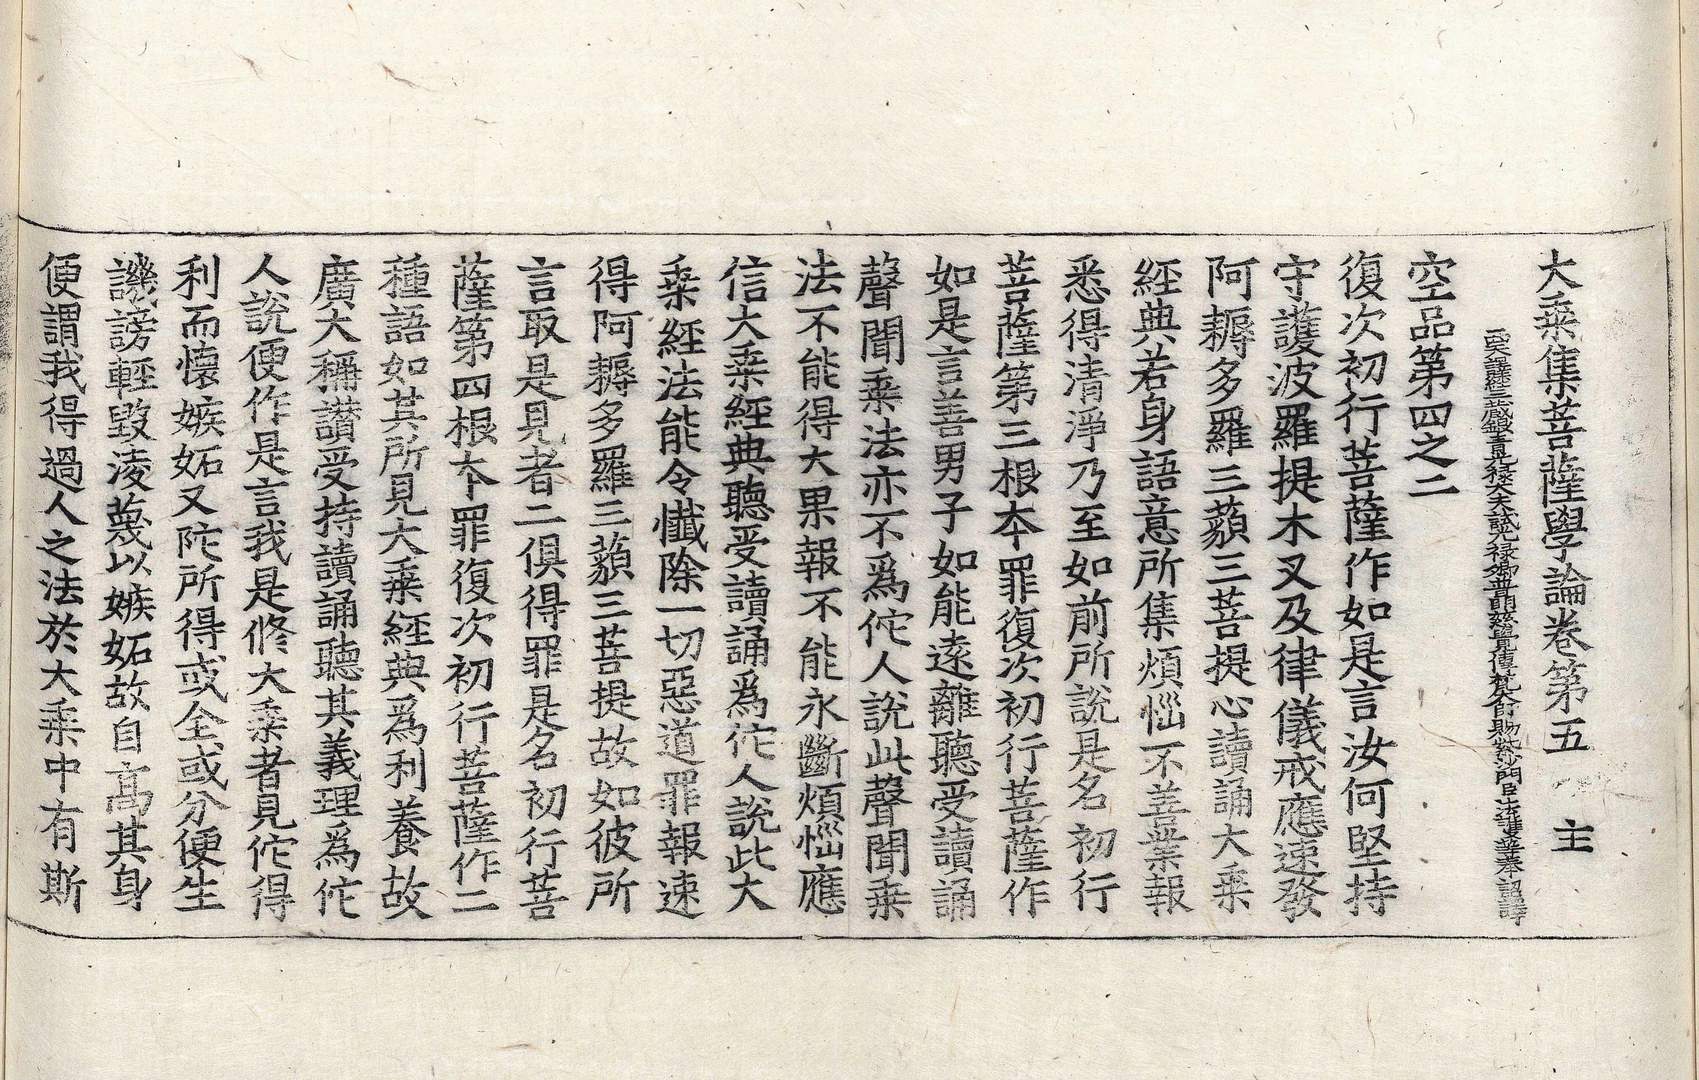 大乗集菩薩學論卷第五　主
西天譯經三藏銀青光禄大夫試光禄卿普明慈覺傳梵大師賜紫沙門臣法護等奉 詔譯
空品第四之二
復次初行菩薩作如是言汝何堅持
守護波羅提木叉及律儀戒應速發
阿耨多羅三藐三菩提心讀誦大乗
經典若身語意所集煩惱不善業報
悉得清淨乃至如前所說是名初行
菩薩第三根本罪復次初行菩薩作
如是言善男子如能遠離聽受讀誦
聲聞乗法亦不爲佗人說此聲聞乗
法不能得大果報不能永斷煩惱應
信大乗經典聽受讀誦爲佗人說此大
乗經法能令懺除一切惡道罪報速
得阿耨多羅三藐三菩提故如彼所
言取是見者二俱得罪是名初行菩
薩第四根本罪復次初行菩薩作二
種語如其所見大乗經典爲利養故
廣大稱讃受持讀誦聽其義理爲佗
人說便作是言我是修大乗者見佗得
利而懷嫉妬又陀所得或全或分便生
譏謗輕毀淩蔑以嫉妬故自髙其身
便謂我得過人之法於大乗中有斯